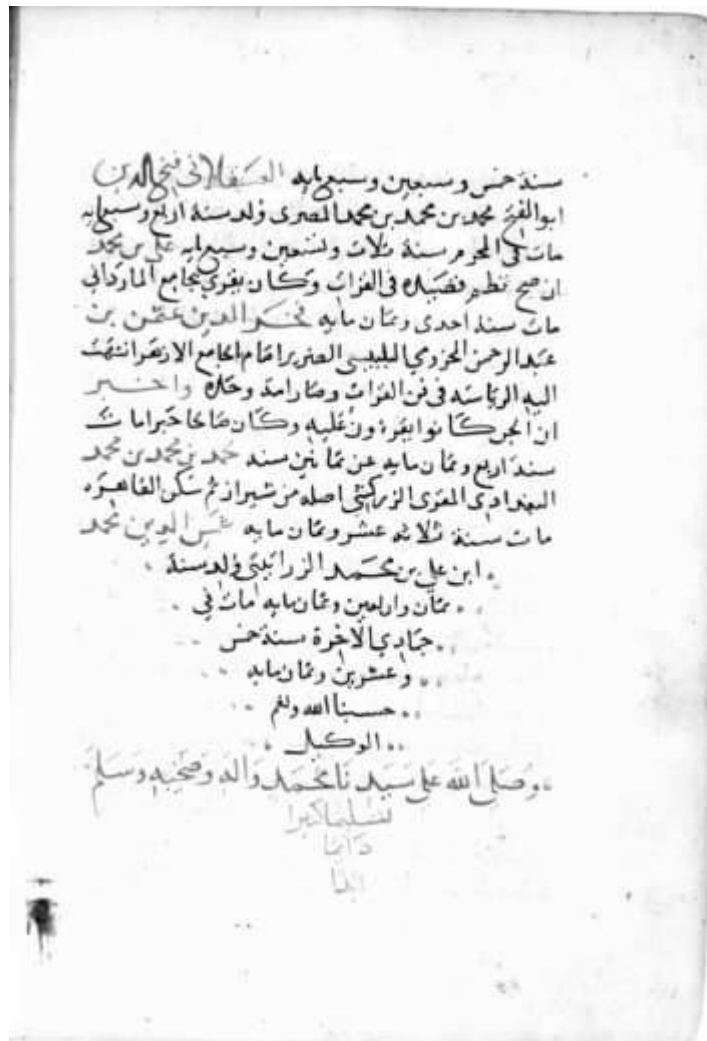 سنة خمس وسبعين وسبع مايه العسقلاني فتح الدين
ابو الفتح محمد بن محمد بن محمد المصري ولد سنة اربع وسبعمايه
مات في المحرم سنة ثلاث وتسعين وسبع مايه علي بن محمد
ان صح نظير فضيلة في القرات وكان يقري بجامع المارداني
مات سنة احدى وثمان مايه فخر الدين عثمن بن
عبد الرحمن المخزومي البلبيسي الضرير امام الجامع الازهر انتهت
اليه الرياسه في فن القرات وصار امة وحده واخبر
ان الجن كانوا يقرءون عليه وكان صالحا خيرا مات
سنة اربع وثمان مايه عن ثمانين سنه محمد بن محمد بن محمد
البغدادي المقري الزركشي اصله من شيراز ثم سكن القاهره
مات سنة ثلاثه عشر وثمان مايه شمس الدين محمد
ابن علي بن محمد الزراتيتي ولد سنة
ثمان واربعين وثمان مايه مات في
جمادي الاخرة سنة خمس
وعشرين وثمان مايه
حسبنا الله ونعم
الوكيل
وصلى الله على سيدنا محمد واله وصحبه وسلم
تسليما كثيرا
دايما
ابدا